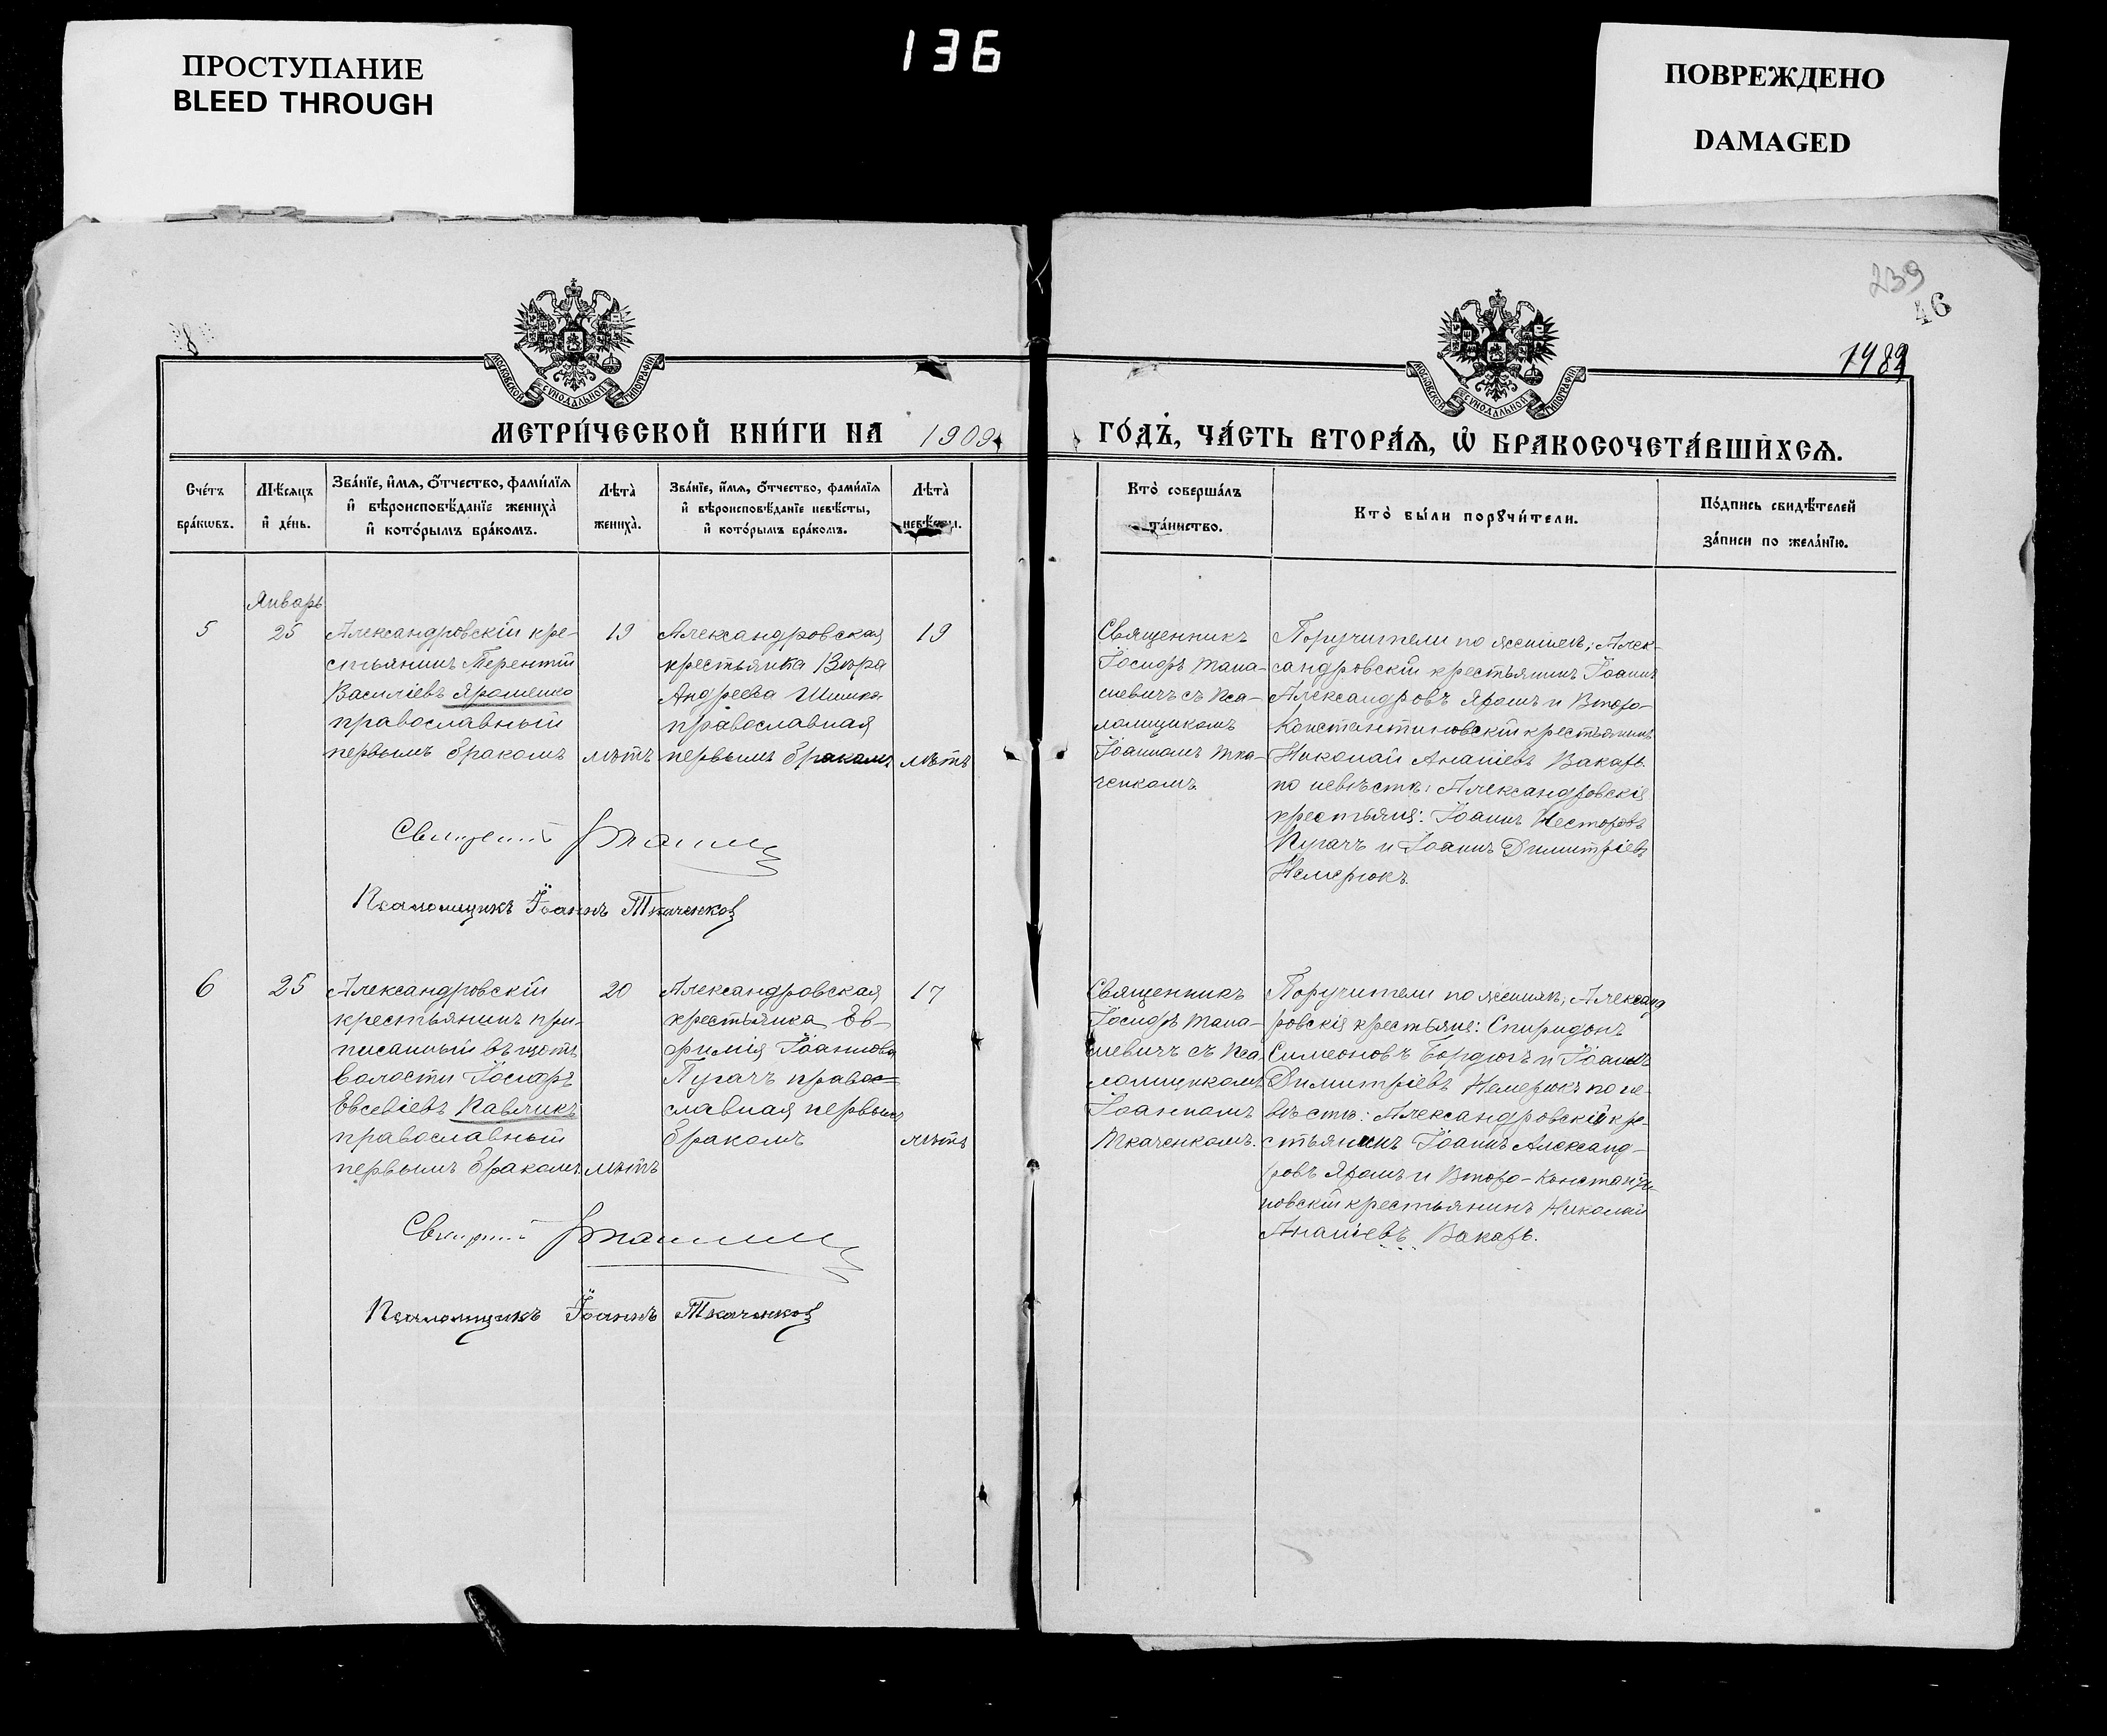 ПРОСТУПАНИЕ
BLEED THROUGH
136
ПОВРЕЖДЕНО
DAMAGED
239
46
1989
МОСКОВСКОЙ СѴНОДАЛЬНОЙ ТИПОГРАФІИ
МОСКОВСКОЙ СѴНОДАЛЬНОЙ ТИПОГРАФІИ
МЕТРИ́ЧЕСКОЙ КНИ́ГИ НА 1909
ГО́ДЪ, ЧА́СТЬ ВТОРА́Я, Ѡ БРАКОСОЧЕТА́ВШИХСѦ.
Сче́тъ бра́кѡвъ.
Мѣ́сяцъ и де́нь.
Зва́нїе, и́мя, о́тчество, фами́лїя и вѣроисповѣ́данїе жениха̀ и кото́рымъ бра́комъ.
Лѣта̀ жениха̀.
Зва́нїе, и́мя, о́тчество, фами́лїя и вѣроисповѣ́данїе невѣ́сты, и кото́рымъ бра́комъ.
Лѣта̀ невѣ́сты.
Кто̀ соверша́лъ та́инство.
Кто̀ бы́ли порꙋчи́тели.
По́дпись свидѣ́телей за́писи по жела́нїю.
Январь
5
25
Александровскій кре-
стьянинъ Терентій
Василіевъ Ярошенко
православный
первымъ бракомъ
19
лѣтъ
Александровская
крестьянка Вѣра
Андреева Шишка
православная
первымъ бракомъ
19
лѣтъ
Священникъ
Іосифъ Тана-
сіевичъ съ Пса-
ломщикомъ
Іоанномъ Тка-
ченкомъ.
Поручители по женихѣ; Алек-
сандровскій крестьянинъ Іоаннъ
Александровъ Яромъ и Второ-
Константиновскій крестьянинъ
Николай Ананіевъ Вакарь.
по невѣстѣ: Александровскіе
крестьяне: Іоаннъ Несторовъ
Пугачъ и Іоаннъ Димитріевъ
Немерюкъ.
Священникъ
Псаломщикъ Іоаннъ Ткаченков
6
25
Александровскій
крестьянинъ при-
писанный въ
волости Іосифъ
Евсевіевъ Павликъ
православный
первымъ бракомъ
20
лѣтъ
Александровская
крестьянка Ев-
фимія Іоаннова
Пугачъ правос=
славная первымъ
бракомъ
17
лѣтъ
Священникъ
Іосифъ Тана-
сіевичъ съ Пса-
ломщикомъ
Іоанномъ
Ткаченкомъ.
Поручители по женихѣ; Александ
ровскіе крестьяне: Спиридонъ
Симеоновъ Бордюгъ и Іоаннъ
Димитріевъ Немерюкъ по не-
вѣстѣ: Александровскій кре-
стьянинъ Іоаннъ Александ-
ровъ Яромъ и Второ-Константи-
новскій крестьянинъ Николай
Ананіевъ Вакарь.
Священникъ
Псаломщикъ Іоаннъ Ткаченков